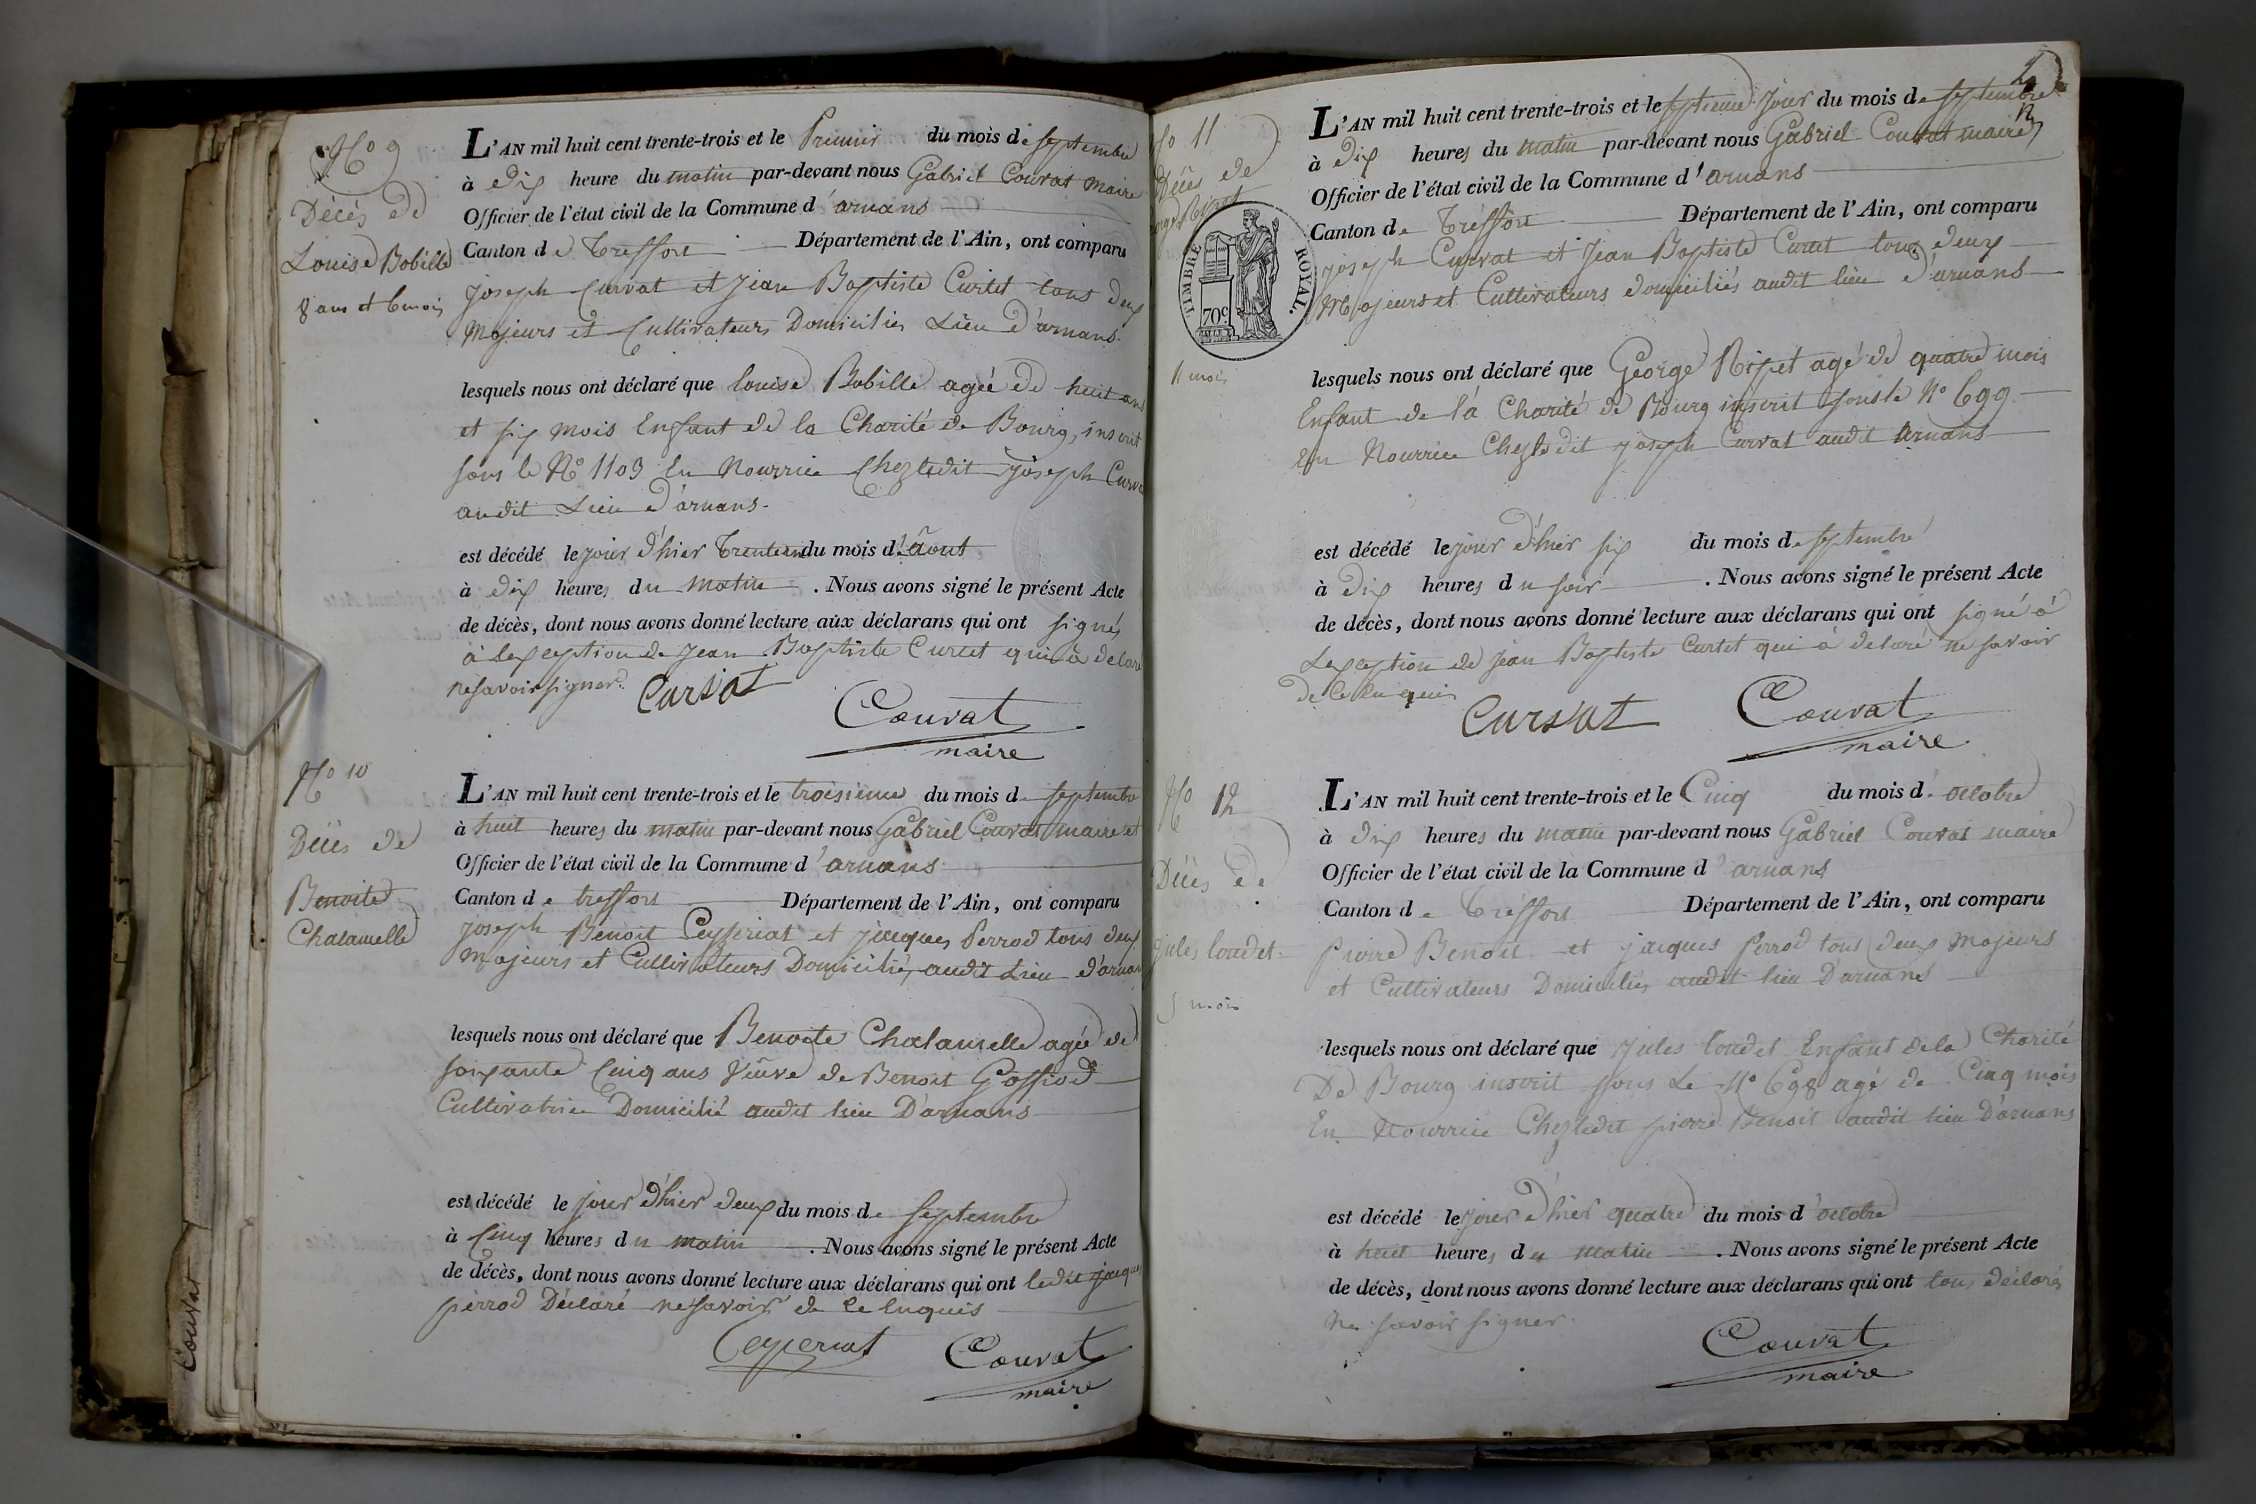 No 9
Décés de
Louise Bobille
8 ans et 6 mois
L'AN mil huit cent trente-trois et le Premier du mois de septembre
à dix heure du matin par-devant nous Gabriel Couvat maire
Officier de l'état civil de la Commune d'arnans
Canton de Treffort Département de l'Ain, ont comparu
joseph Curvat et jean Baptiste Curtet tous deux
Majeurs et Cultivateurs Domiciliés Lieu D'arnans
lesquels nous ont déclaré que louise Bobille agée de huit ans
et six mois Enfant de la Charité de Bourg, inscrit
sous le No 1103 En Nourrice Chez ledit joseph Curvat
audit Lieu d'arnans.
est décédé le jour d'hier Trente un du mois d'Août
à dix heures du matin . Nous avons signé le présent Acte
de décès, dont nous avons donné lecture aux déclarans qui ont signés
à Lexception de jean Baptiste Curtet qui à delaré
ne savoir signer. Curvat
Couvat
maire
No 10
Décés de
Benoite
Chatamelle
L'AN mil huit cent trente-trois et le troisieme du mois de septembre
à huit heures du matin par-devant nous Gabriel Couvat maire et
Officier de l'état civil de la Commune d'arnans
Canton de treffort Département de l'Ain, ont comparu
joseph Benoit Ceyzeriat et jacques Perrod tous deux
Majeurs et Cultivateurs Domiciliés audit Lieu d'arnans
lesquels nous ont déclaré que Benoite Chatamelle agée de
soixante Cinq ans Veuve de Benoit Goffiod
Cultivatrice Domicilié audit lieu D'arnans
est décédé le jour d'hier deux du mois de septembre
à Cinq heures du matin . Nous avons signé le présent Acte
de décès, dont nous avons donné lecture aux déclarans qui ont ledit jacques
perrod Déclaré ne savoir de ce Enquis
Couvat
maire
No 11
Décés de
TIMBRE ROYAL.
70c
4 mois
L'AN mil huit cent trente-trois et le septieme jour du mois de septembre
à dix heures du matin par-devant nous Gabriel Couvat maire
Officier de l'état civil de la Commune d'arnans
Canton de Treffort Département de l'Ain, ont comparu
joseph Curvat et jean Baptiste Curtet tous deux
Majeurs et Cultivateurs domiciliés audit lieu d'arnans
lesquels nous ont déclaré que George agé de quatre mois
Enfant de la Charité de Bourg inscrit sous le No 699
En Nourrice Chez ledit joseph Curvat audit Arnans
est décédé le jour d'hier six du mois de septembre
à dix heures du soir . Nous avons signé le présent Acte
de décès, dont nous avons donné lecture aux déclarans qui ont signé à
Lexception de jean Baptiste Curtet qui à delaré ne savoir
de ce Enquis
Curvat Couvat
maire
No 12
Décés de
jules loudet
5 mois
L'AN mil huit cent trente-trois et le Cinq du mois d'octobre
à dix heures du matin par-devant nous Gabriel Couvat maire
Officier de l'état civil de la Commune d'arnans
Canton de Treffort Département de l'Ain, ont comparu
pierre Benoit et jacques Perrod tous deux Majeurs
et Cultivateurs Domiciliés audit lieu D'arnans
lesquels nous ont déclaré que jules loudet Enfant de la Charité
De Bourg inscrit sous Le No 698 agé de Cinq mois
En Nourrice Chez ledit pierre Benoit audit lieu D'arnans
est décédé le jour d'hier quatre du mois d'octobre
à huit heures du matin . Nous avons signé le présent Acte
de décès, dont nous avons donné lecture aux déclarans qui ont tous déclarés
Ne savoir signer.
Couvat
maire
Couvat